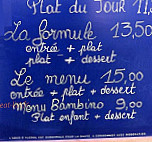 Plat du Jour 11,
La formule 13,50
entrée + plat
plat + dessert
Le menu 15,00
entrée + plat + dessert
Menu Bambino 9,00
Plat enfant + dessert